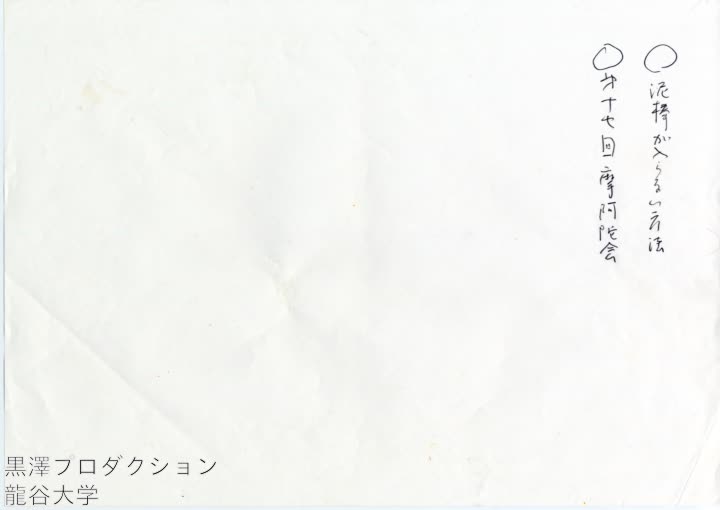 ○泥棒が入らない方法
○第十七回摩阿陀会
黒澤プロダクション
龍谷大学